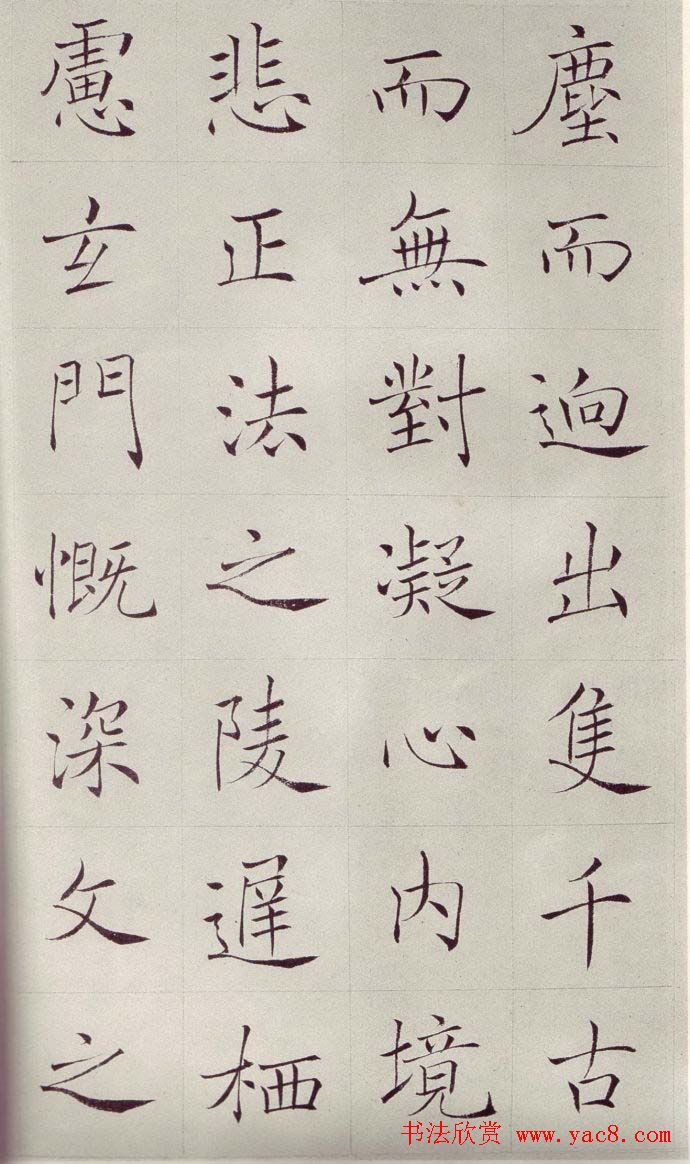 塵而迥出隻千古
而無對凝心内境
悲正法之陵遲栖
慮玄門慨深文之
书法欣赏 www.yac8.com